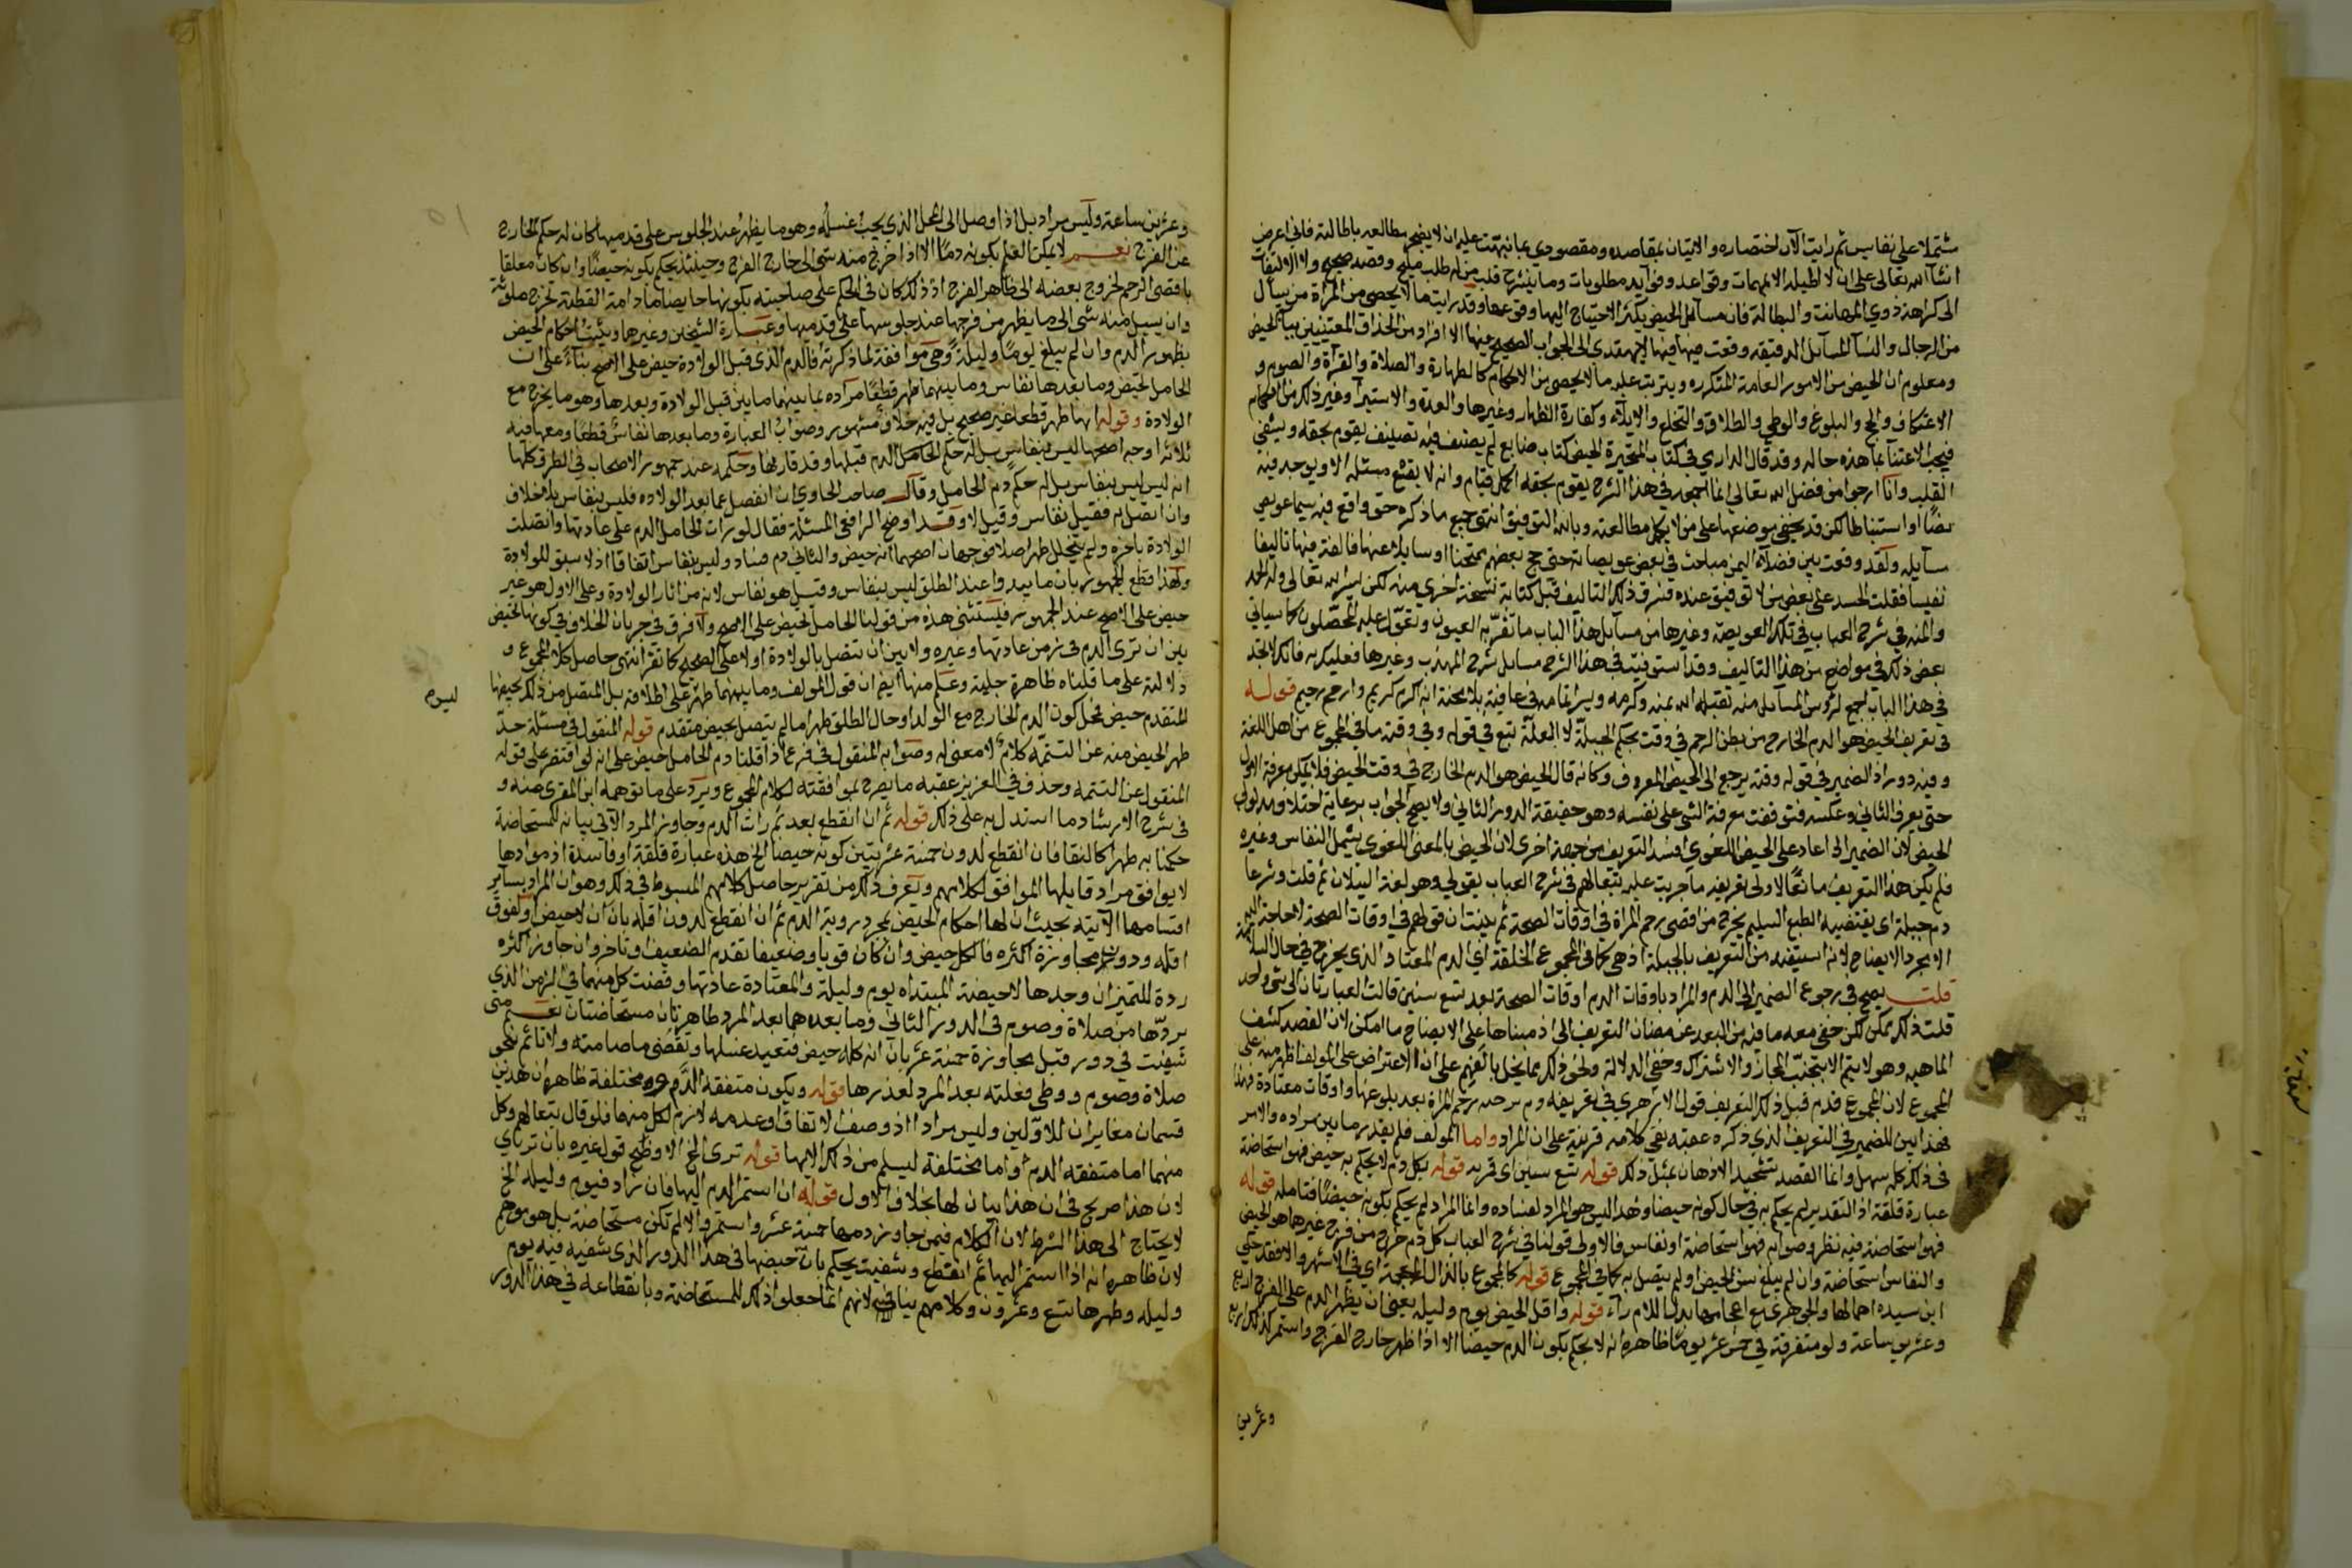 مشتملا على نفايس ثم رايت الآن اختصاره والاتيان بمقاصده ومقصودي بما نبهت عليه ان لا يضجر مطالعه باطالته فاني اعرض
انشا الله تعالى على ان لا اطيله الا بمهمات وقواعد وفوايد مطلوبات وما ينشرح قلب من له طلب مليح وقصد صحيح ولا التفات
الى كراهة ذوي المهانت والبطالة فان مسائل الحيض يكثر الاحتياج اليها وقوعها وقد رايت ما لا يحصى من المراة من يسأل
من الرجال والنسا المسآئل الدقيقه وقعت فيها لا يهتدي الى الجواب الصحيح عنها الا افراد من الحذاق المعتنين بباب الحيض
ومعلوم ان الحيض من الامور العامة المتكرره ويترتب عليه ما لا يحصى من الاحكام كالطهارة والصلاة والقرآة والصوم و
الاعتكاف والحج والبلوغ والوطي والطلاق والخلع والايلاء وكفارة الظهار وغيرها والعدة والاستبرآ وغير ذلك من الاحكام
فيجب الاعتنآ بما هذه حاله وقد قال الدارمي في كتاب المتحيرة الحيض كتاب ضايع لم يصنف فيه تصنيف يقوم بحقه ويشفي
القلب وانا ارجوا من فضل الله تعالى انما اجمعه في هذا الشرح يقوم بحقه اكمل قيام وانه لا يقع مسئلة الا ويوجد فيه
نصًا او استنباطا لكن قد يخفى موضعها على من لا يكمل مطالعته وبالله التوفيق انتهى جميع ما ذكره حق واقع فيه سيما عويص
مسآيله ولقد وقعت بين فضلآء اليمن مباحث في بعض عويصاته حتى حج بعضهم ممتحنا او سايلا عنها فالفت فيها تاليفا
نفيسا فقلت الحسد على بعض من لا توفيق عنده فسرق ذلك التاليف قبل كتابة نسخة اخرى منه لكن يسر الله تعالى وله الحمد
والمنه في شرح العباب في تلك العويصة وغيرها من مسآئل هذا الباب ما تقر به العيون ويعوّل عليه المحصّلون كما سياتي
بعض ذلك في مواضع من هذا التاليف وقد استوفيت في هذا الشرح مسايل شرح المهذب وغيرها فعليك به فانك لا تجد
في هذا الباب اجمع لرؤس المسآئل منه تقبله الله بمنه وكرمه ويسر اتمامه في عافية بلا محنة انه اكرم كريم وارحم رحيم قوله
في تعريف الحيض هو الدم الخارج من بطن الرحم في وقت بحكم الجبلّة لا لعلّة تبع في قوله وفي وقته ما في المجموع عن اهل اللغة
وفيه دور اذ الضمير في قوله وقته يرجع الى الحيض المعروف وكانه قال الحيض هو الدم الخارج في وقت الحيض فلا يمكن معرفة الاول
حتى يعرف الثاني وعكسه فتوقفت معرفة الشي على نفسه وهو حقيقة الدور الثاني ولا يصح الجواب برعاية اختلاف مدلولي
الحيض لان الضمير اذا عاد على الحيض اللغوي افسد التعريف من جهة اخرى لان الحيض بالمعنى اللغوي يشمل النفاس وغيره
فلم يكن هذا التعريف مانعًا فالاولى تعريفه ما جريت عليه تبعا لهم في شرح العباب بقولي وهو لغة السيلان ثم قلت وشرعا
دم جبلة اي يقتضيه الطبع السليم يخرج من اقصى رحم المراة في اوقات الصحة ثم بينت ان قولهم في اوقات الصحة لا حاجة اليه
الا مجرد الايضاح لانه استفيد من التعريف بالجبلة اذ هي كما في المجموع الخلقة اي الدم المعتاد الذي يخرج في حال السلامة
قلت يصح في رجوع الضمير الى الدم والمراد باوقات الدم اوقات الصحة بعد تسع سنين قالت العبارتان الى شي واحد
قلت ذلك ممكن لكن خفي معه ما فيه من البعد عن مضان التعريف اذ مبناها على الايضاح ما امكن لان القصد كشف
الماهيه وهو لا يتم الا بتجنب المجاز والاشتراك وخفي الدلالة ونحو ذلك مما يخل بالفهم على ان الاعتراض على المولف اظهر منه على
المجموع لان المجموع قدم قبل ذلك التعريف قول الازهري في تعريفه دم يرخيه رحم المراة بعد بلوغها في اوقات معتادة فهذا
فهذا يبين الضمير في التعريف الذي ذكره عقبه ففي كلامه قرينة على ان المراد واما المولف فلم يقدر ما يبين مراده والامر
في ذلك كله سهل وانما القصد تشحيذ الاذهان بمثل ذلك قوله تسع سنين اي قريبه قوله بكل دم لا يحكم به حيض فهو استحاضة
عبارة قلقة اذ التقدير لم يحكم به في حال كونه حيضا وهذا ليس هو المراد لفساده وانما المراد لم يحكم بكونه حيضًا فتامله قوله
فهو استحاضة فيه نظر وصوابه فهو استحاضة او نفاس فالاولى قولنا في شرح العباب كل دم خرج من فرج غيرهما هو الحيض
والنفاس استحاضة وان لم يبلغ سن الحيض او لم يتصل به كما في المجموع قوله كالمجموع بالذال المعجمة اي في الاشهر والافقد حكي
ابن سيده اهمالها والجوهري مع اعجامها بدل اللام رآء قوله واقل الحيض يوم وليلة يعني ان يظهر الدم على الفرج اربع
وعشرين ساعة ولو متفرقة في خمس عشر يومًا ظاهره انه لا يحكم بكون الدم حيضا الا اذا ظهر خارج الفرج واستمر كذلك اربع
وعشرين
وعشرين ساعة وليس مراد بل اذا وصل الى المحل الذي يجب غسله وهو ما يظهر عند الجلوس على قدميها كان له حكم الخارج
عن الفرج نعم لا يمكن العلم بكونه دمًا الا اذا خرج منه شي الى خارج الفرج وحينئذ يحكم بكونه حيضًا وان كان معلقا
باقصى الرحم لخروج بعضه الى ظاهر الفرج اذ ذلك كان في الحكم على صاحبته بكونها حايضا ما دامت القطنة تخرج ملوثة
وان يسيل منه شي الى ما يظهر من فرجها عند جلوسها على قدميها وعبارة الشيخين وغيرهما ويثبت احكام الحيض
بظهور الدم وان لم يبلغ يومًا وليلةً وهي موافقة لما ذكرته فالدم الذي قبل الولادة حيض على الاصح بناءً على ان
الحامل تحيض وما بعدها نفاس وما بينهما طهر قطعًا مراده بما بينهما ما بين قبل الولادة وبعدها وهو ما يخرج مع
الولادة وقوله انها طهر قطعا غير صحيح بل فيه خلاف مشهور وصواب العبارة وما بعدها نفاسٌ قطعًا ومعها فيه
ثلاثة اوجه اصحها ليس بنفاس بل له حكم الحامل الدم قبلها وقد قارنها وحكمه عند جمهور الاصحاب في الطرق كلها
انه ليس ليس بنفاس بل له حكم دم الحامل وقال صاحب الحاوي ان انفصل عما بعد الولاده فليس بنفاس بلا خلاف
وان اتصل به فقيل نفاس وقيل لا وقد اوضح الرافعي المسئلة فقال لو رات الحامل الدم على عادتها واتصلت
الولادة باخره ولم يتخلل طهر اصلا فوجهان اصحهما انه حيض والثاني دم فساد وليس بنفاس اتفاقا اذ لا سبق للولادة
ولهذا قطع الجمهور بان ما يبدوا عند الطلق ليس بنفاس وقيل هو نفاس لانه من اثار الولادة وعلى الاول هو غير
حيض على الاصح عند الجمهور فيستثنى هذه من قولنا الحامل تحيض على الاصح ولا فرق في جريان الخلاف في كونها تحيض
بين ان ترى الدم في زمن عادتها وغيره ولا بين ان تتصل بالولادة اولا على الصحيح كما تقرر انتهى حاصل كلام المجموع و
دلالته على ما قلناه ظاهرة جلية وعلم منها ايضا ان قول المولف وما بينهما طهر على اطلاقه بل المتصل من ذلك بحيضها
ليوم
المتقدم حيض فحل كون الدم الخارج مع الولد او حال الطلق طهرا ما لم يتصل بحيض متقدم قوله المنقول في مسئلة حدّ
طهر الحيض منه عن التتمّه كلامٌ لا معنى له وصوابه المنقول في فرع اذا قلنا دم الحامل حيض على انه لو اقتصر على قوله
المنقول عن التتمه وحذف في العزيز عقبه ما يصرح بموافقته لكلام المجموع ويرد على ما توهمه ابن المقري منه و
في شرح الارشاد ما استدل به على ذلك قوله ثم ان انقطع بعد ثم رات الدم وجاوز المرد الآتي بيانه للمستحاضة
حكمنا به طهرا كالنقا فان انقطع لدون خمسة عشر يتبين كونه حيضا الخ هذه عبارة قلقة او فاسدة اذ موادها
لا يوافق مراد قايلها الموافق لكلامهم وتعرف ذلك من تقرير حاصل كلامهم المبسوط في ذلك وهو ان المراد بساير
اقسامها الآتية بحيث ان لها احكام الحيض بمجرد روية الدم ثم ان انقطع لدون اقله بان ان لا حيض او لفوق
اقله ودون مجاوزة اكثره فالكل حيض وان كان قويا وضعيفا تقدم الضعيف او تاخر وان جاوز اكثره
ردة للتميزان وجدها لا حيضة المبتداه يوم وليلة والمعتادة عادتها وقضت كل منهما في الزمن الذي
بردّها من صلاة وصوم في الدور الثاني وما بعده هما بعد المرد طاهرتان مستحاضتان نعم متى
شفيت في دور قبل مجاوزة خمسة عشر بان انه كله حيض فتعيد غسلها وتقضي ما صامته ولا تأثم بنحو
صلاة وصوم ووطي فعلته بعد المرد لعذرها قوله ويكون متفقه الدم ومختلفة ظاهره ان هذين
قسمان مغايران للاوّلين وليس مرادا اذ وصف الاتفاق وعدمه لازم لكل منهما فلو قال تبعا لهم وكل
منهما اما متفقه الدم او اما مختلفة ليسلم من ذلك الايهام قوله ترى الخ الاوضح قول غيره بان تراي
لان هذا صريح في ان هذا بيان لها بخلاف الاول قوله ان استمر الدم اليها فان زاد فيوم وليله الخ
لا يحتاج الى هذا الشرط لان الكلام فيمن جاوز دمها خمسة عشر واستمر والا لم تكن مستحاضة بل هو موهم
لان ظاهره انه اذا استمر اليها ثم انقطع وشفيت يحكم بان حيضها في هذا الدور الذي شفيه فيه يوم
وليله وطهرها تسع وعشرون وكلامهم ينافيه لانهم انما جعلوا ذلك للمستحاضة وبانقطاعه في هذا الدور